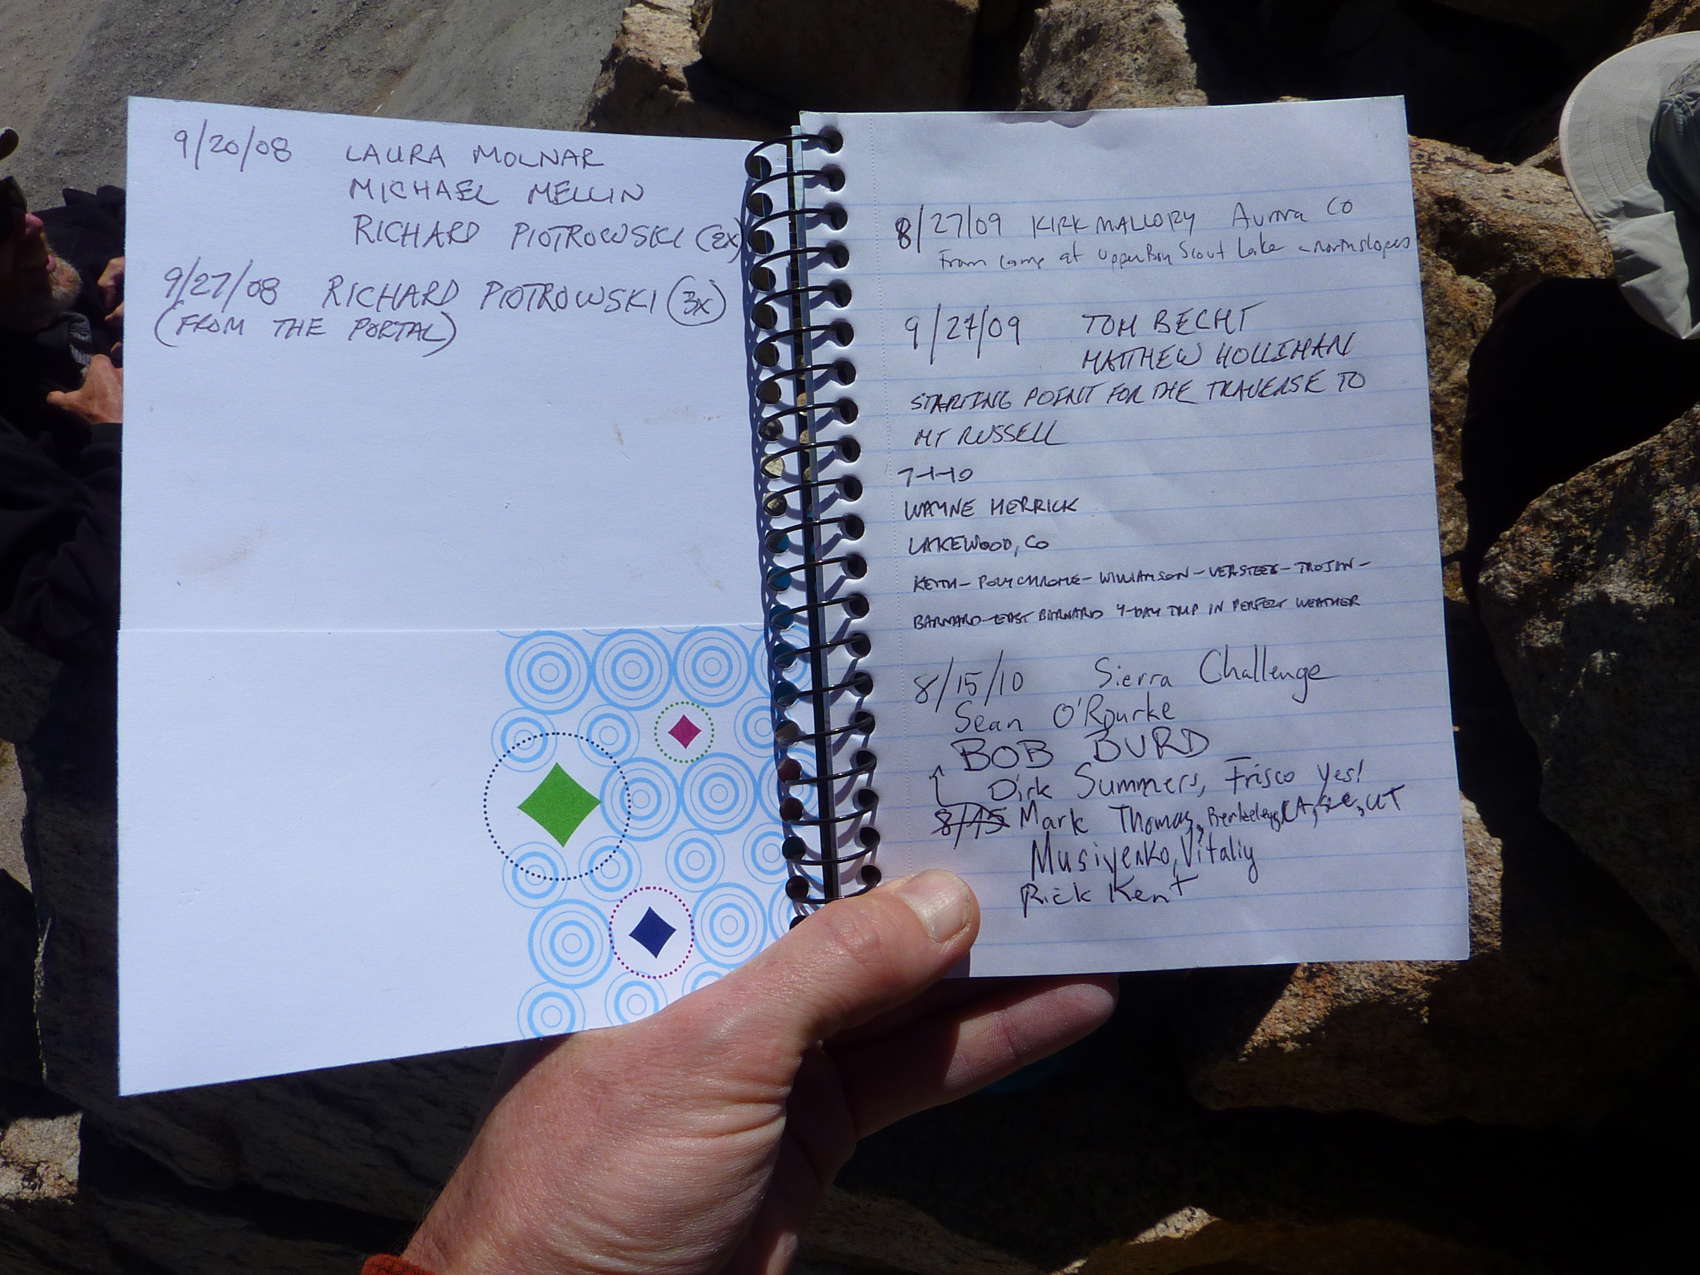 9/20/08 LAURA MOLNAR
MICHAEL MELLIN
RICHARD PIOTROWSKI (2x)
9/27/08 RICHARD PIOTROWSKI (3x)
(FROM THE PORTAL)
8/27/09 KIRK MALLORY Aurora CO
From camp at Upper Boy Scout Lake - north slopes
9/27/09 TOM BECHT
MATTHEW HOLLIMAN
STARTING POINT FOR THE TRAVERSE TO
MT RUSSELL
7-1-10
WAYNE HERRICK
LAKEWOOD, CO
KEITH - POLYCHROME - WILLIAMSON - VERSTEEG - TROJAN -
BARNARD - EAST BARNARD 4-DAY TRIP IN PERFECT WEATHER
8/15/10 Sierra Challenge
Sean O'Rourke
BOB BURD
Dirk Summers, Frisco Yes!
8/15 Mark Thomas, Berkeley, CA, SLC, UT
Musiyenko, Vitaliy
Rick Kent